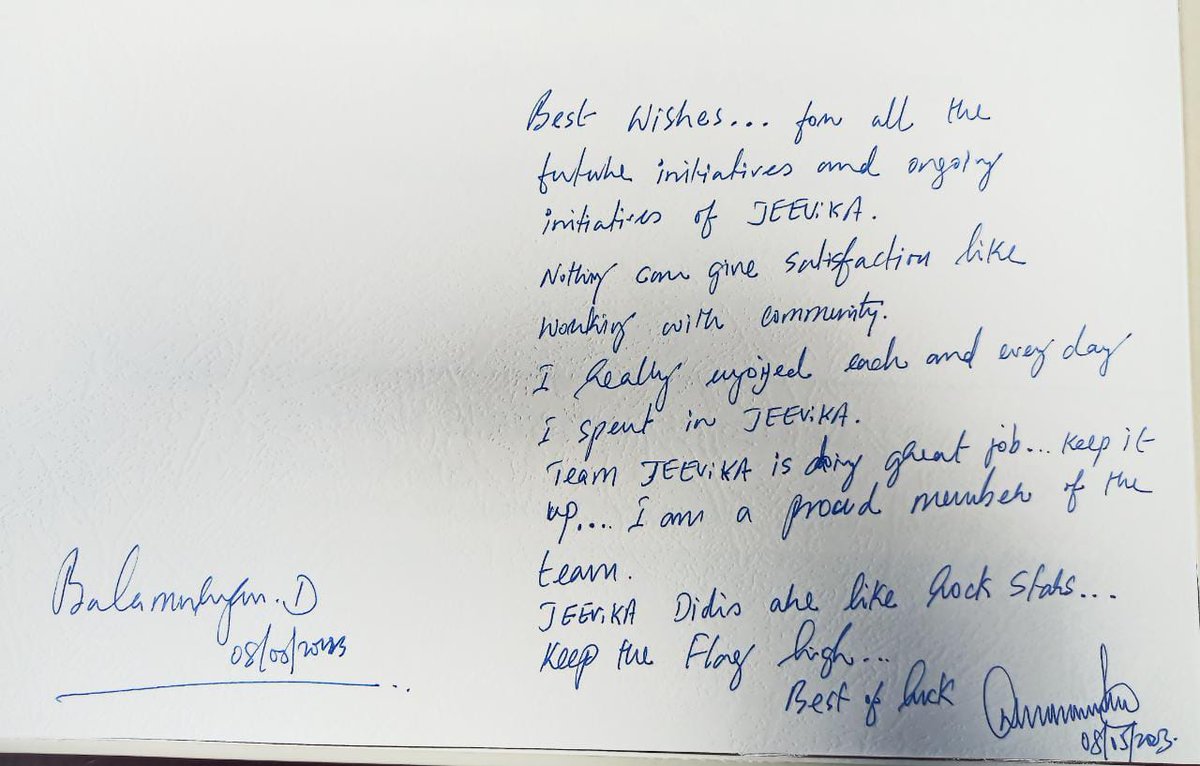 Best Wishes... for all the
future initiatives and ongoing
initiatives of JEEViKA.
Nothing can give satisfaction like
working with community.
I really enjoyed each and every day
I spent in JEEViKA.
Team JEEViKA is doing great job... Keep it
up.... I am a proud member of the
team.
JEEViKA Didis are like Rock Stars...
Keep the Flag high...
Best of luck
08/05/2023.
Balamurugan. D